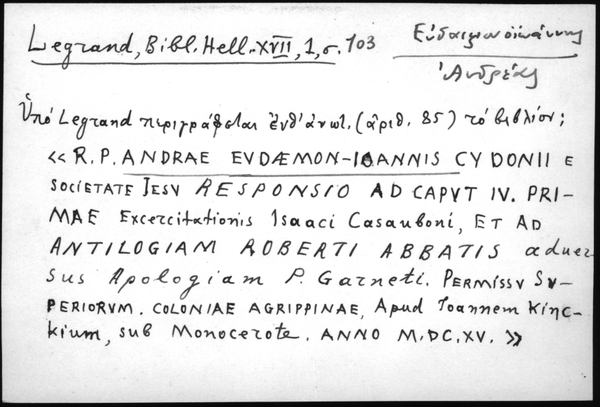 Legrand, Bibl. Hell. XVII, 1, σ. 103
Εὐδαιμονοϊωάννης
Ἀνδρέας
Ὑπό Legrand περιγράφεται ἐνθ' ἀνωτ. (ἀριθ. 85) τό βιβλίον;
« R. P. ANDRAE EVDÆMON-IOANNIS CYDONII E
SOCIETATE JESV RESPONSIO AD CAPVT IV. PRI-
MAE Excercitationis Isaaci Casauboni, ET AD
ANTILOGIAM ROBERTI ABBATIS aduer
sus Apologiam P. Garneti. PERMISSV SV-
PERIORVM. COLONIAE AGRIPPINAE, Apud Ioannem Kinc-
kium, sub Monocerote. ANNO M.DC.XV. »